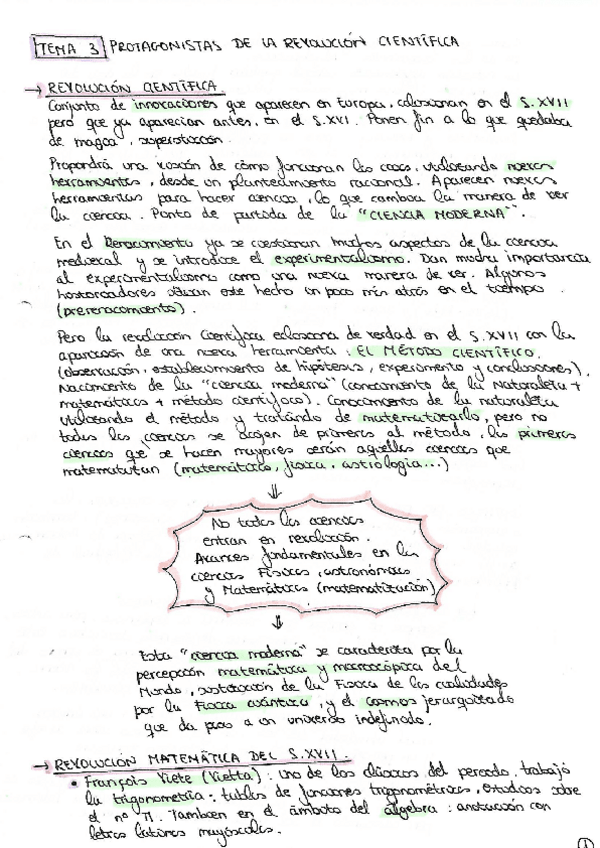 TEMA 3 PROTAGONISTAS DE LA REVOLUCIÓN CIENTÍFICA
→ REVOLUCIÓN CIENTÍFICA
Conjunto de innovaciones que aparecen en Europa, colosionan en el S.XVII
pero que ya aparecían antes, en el S.XVI. Ponen fin a lo que quedaba
de magia, superstición.
Propondrá una visión de cómo funcionan las cosas, utilizando nuevas
herramientas, desde un planteamiento racional. Aparecen nuevas
herramientas para hacer ciencia, lo que cambia la manera de ver
la ciencia. Punto de partida de la "CIENCIA MODERNA".
En el Renacimiento ya se cuestionan muchos aspectos de la ciencia
medieval y se introduce el experimentalismo. Dan mucha importancia
al experimentalismo como una nueva manera de ver. Algunos
historiadores sitúan este hecho un poco más atrás en el tiempo
(prerenacimiento).
Pero la revolución científica eclosiona de verdad en el S.XVII con la
aparición de una nueva herramienta: EL MÉTODO CIENTÍFICO.
(observación, establecimiento de hipótesis, experimento y conclusiones).
Nacimiento de la "ciencia moderna" (conocimiento de la Naturaleza +
matemáticas + método científico). Conocimiento de la naturaleza
utilizando el método y tratándo de matematizarlo, pero no
todas las ciencias se acojen de primeras al método, las primeras
ciencias que se hacen mayores serán aquellas ciencias que
matematizan (matemáticas, física, astrología...)
⇓
No todas las ciencias
entran en revolución.
Avances fundamentales en las
ciencias Físicas, astronómicas
y Matemáticas (matematización)
⇓
Esta "ciencia moderna" se caracteriza por la
percepción matemática y macroscópica del
Mundo, sustitución de la Física de las cualidades
por la Física cuántica, y el cosmos jerarquizado
que da paso a un universo indefinido.
→ REVOLUCIÓN MATEMÁTICA DEL S.XVII.
• François Viete (Vietta): uno de los clásicos del periodo, trabajó
la trigonometría: tablas de funciones trigonométricas, estudios sobre
el nº π. Tambien en el ámbito del algebra: anotación con
letras latinas mayúsculas.
1